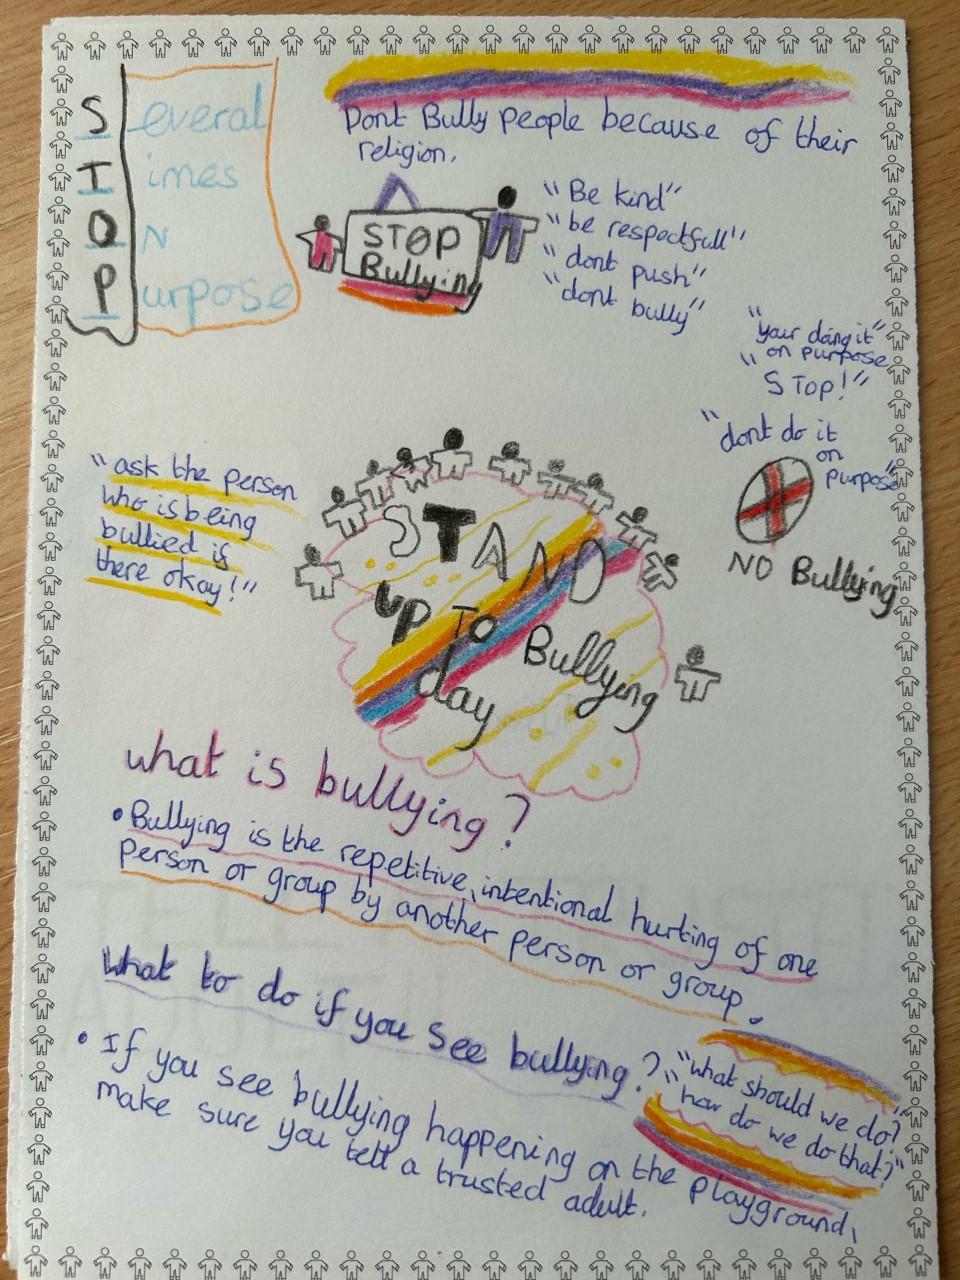 Several
Times
ON
Purpose
Dont Bully people because of their
religion.
STOP
Bullying
"Be kind"
"be respectfull"
"dont push"
"dont bully"
"your doing it"
"on purpose
STOP!"
"dont do it
on
purpose"
NO Bullying
"ask the person
who is being
bullied if
there okay!"
STAND
up TO Bullying
day
what is bullying?
• Bullying is the repetitive, intentional hurting of one
person or group by another person or group.
What to do if you see bullying?
• If you see bullying happening on the playground,
make sure you tell a trusted adult.
"what should we do?"
"how do we do that?"